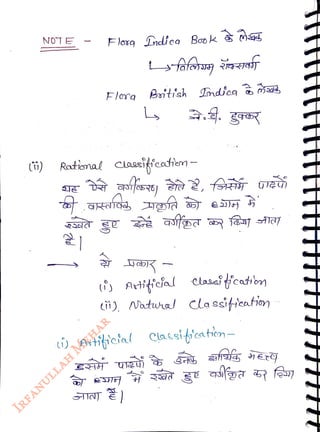 NOTE - Flora Indica Book के लेखक
↳ विलियम रॉक्सबर्ग
Flora British Indica के लेखक
↳ जे. डी. हुक्कर
(ii) Rational Classification -
यह ऐसे वर्गीकरण होते है, जिसमें पादपों
की वास्तविक प्रकृति को ध्यान में
रखते हुए इन्हें वर्गीकृत कर दिया जाता
है।
→ ये प्रकार -
(i) Artificial Classification
(ii). Natural Classification
(i) Artificial Classification -
इसमें पादपों के उनके आर्थिक महत्व
को ध्यान में रखते हुए वर्गीकृत कर दिया
जाता है।
IRFANULLAH MAZHAR